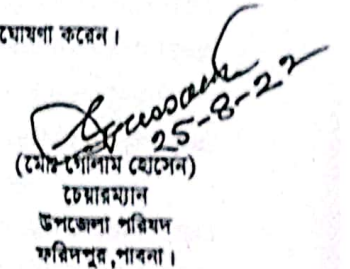 ঘোষণা করেন।
25-8-22
(মোঃ গোলাম হোসেন)
চেয়ারম্যান
উপজেলা পরিষদ
ফরিদপুর, পাবনা।